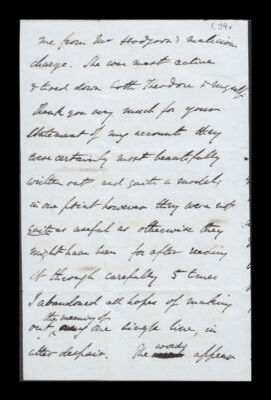 E39v
me from Mr Hodgson's malicious
charge. She was most active
& tired down both Theodore & myself
Thank you very much for your
Statement of my account they
were certainly most beautifully
written out and quite a model
in one point however they were not
quite as useful as otherwise they
might have been for after reading
it through carefully 5 times
I abandoned all hopes of making
the meaning of
out, any one single line, in
utter despair. The words appear